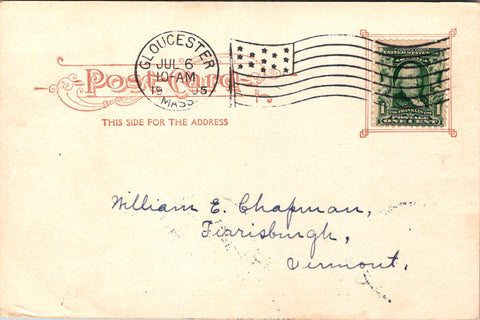 GLOUCESTER
JUL 6
10-AM
19 05
MASS.
UNITED STATES
FRANKLIN
POSTAGE
ONE CENT
Post Card
THIS SIDE FOR THE ADDRESS
William E. Chapman,
Firrisburgh,
Vermont.